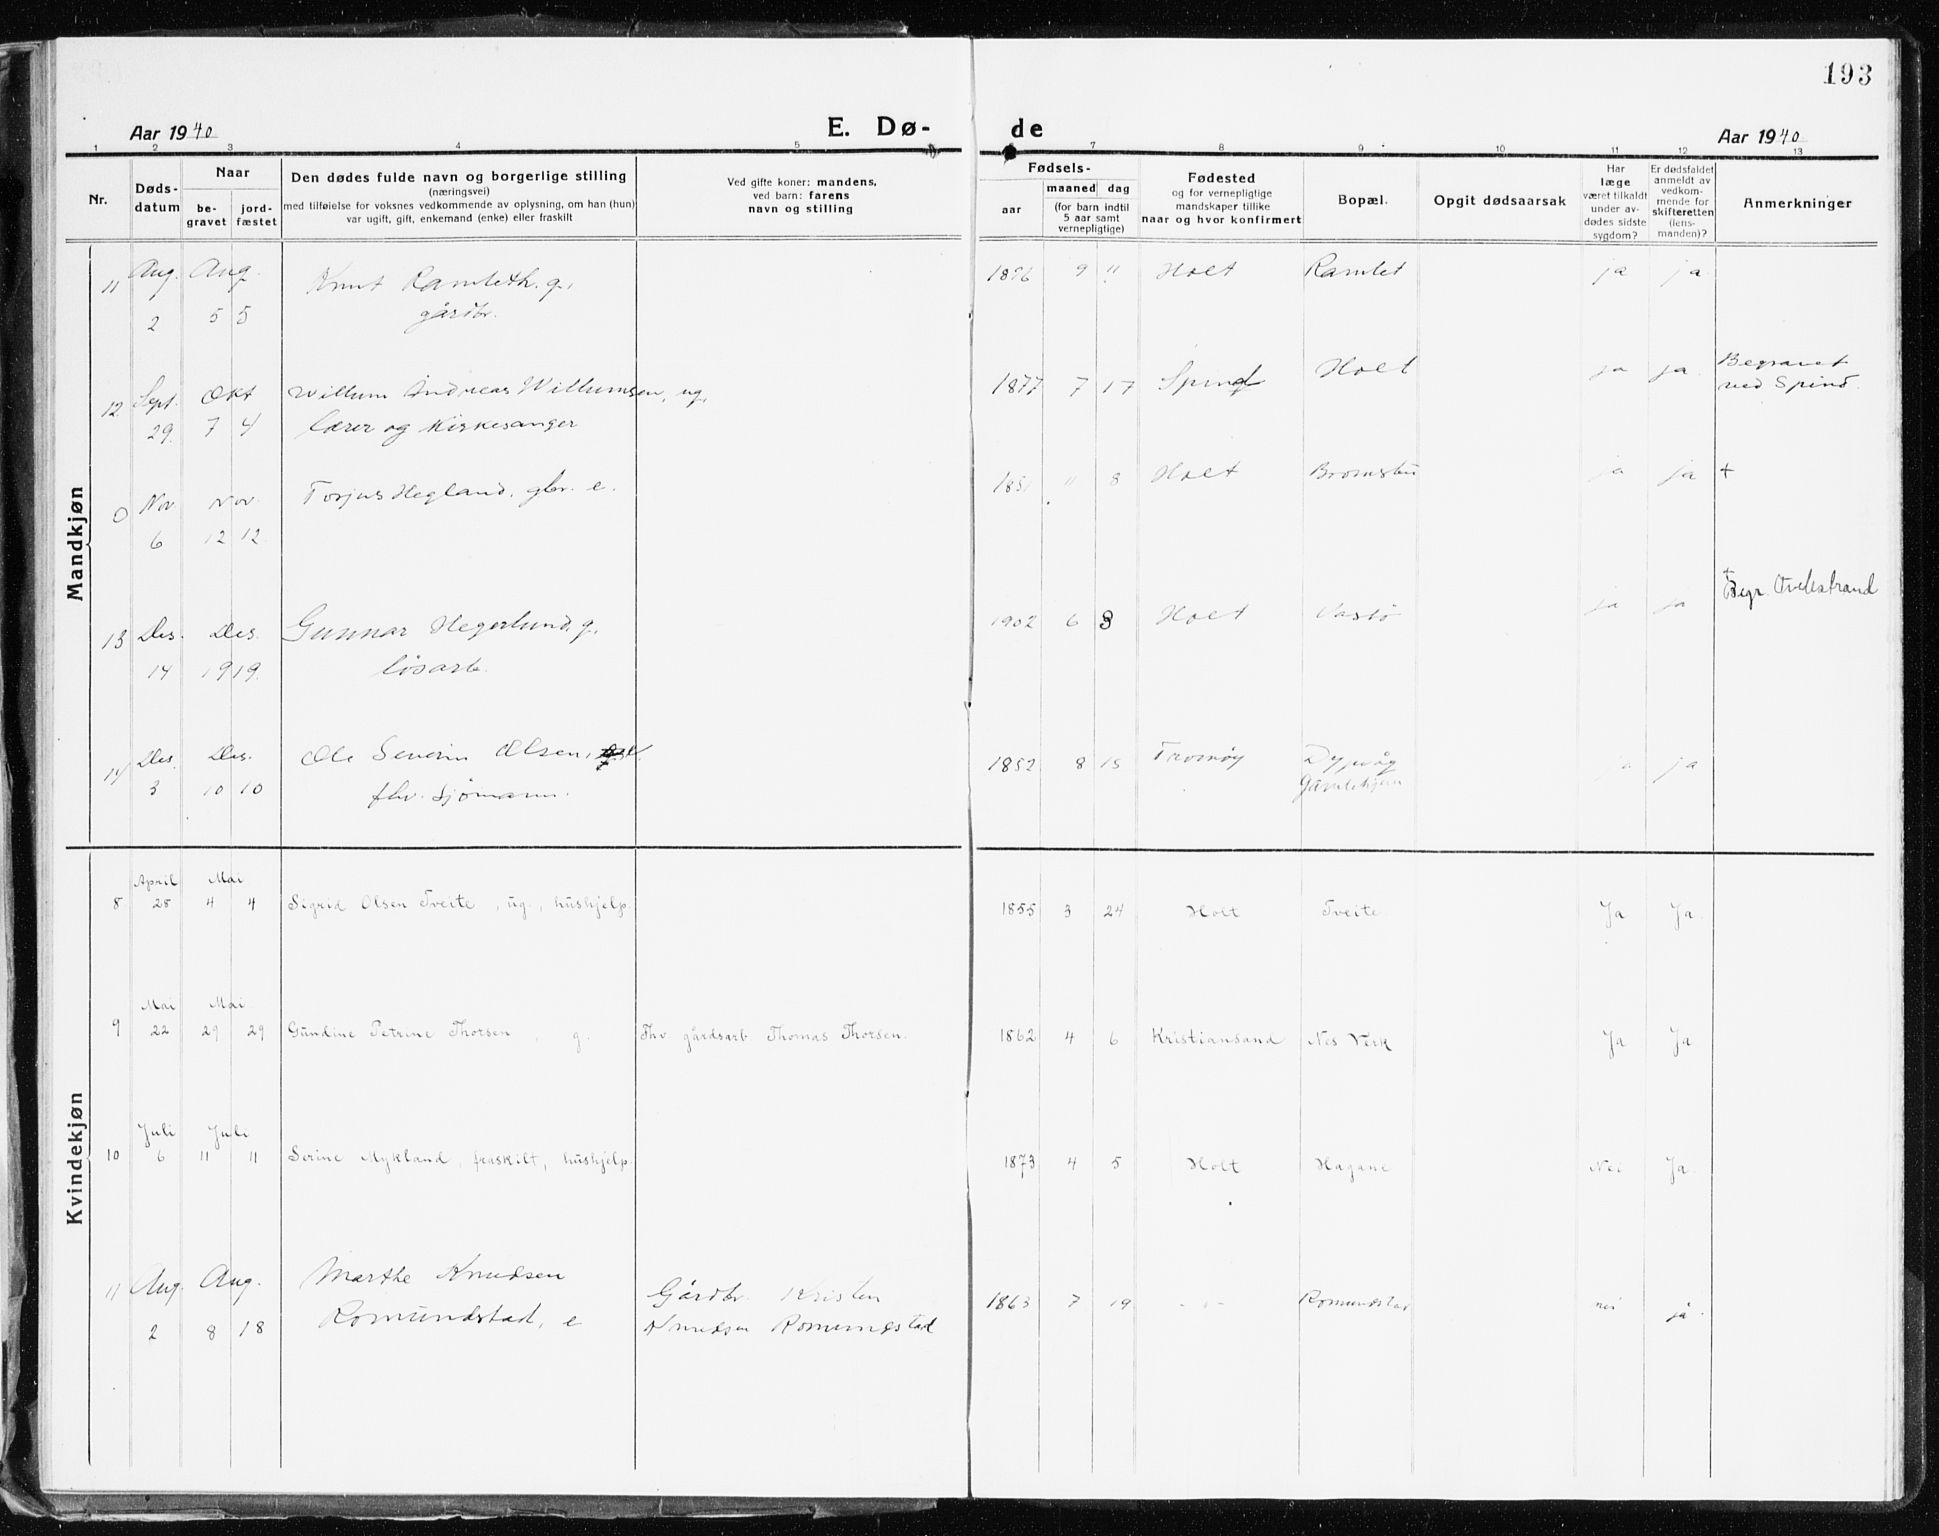 193
Aar 1940
E. Dø-
de
Aar 1940
1 2 3 4 5 7 8 9 10 11 12 13
Nr.
Døds-
datum
Naar
be-
gravet
jord-
fæstet
Den dødes fulde navn og borgerlige stilling
(næringsvei)
med tilføielse for voksnes vedkommende av oplysning, om han (hun)
var ugift, gift, enkemand (enke) eller fraskilt
Ved gifte koner: mandens,
ved barn: farens
navn og stilling
Fødsels-
aar
maaned dag
(for barn indtil
5 aar samt
vernepligtige)
Fødested
og for vernepligtige
mandskaper tillike
naar og hvor konfirmert
Bopæl.
Opgit dødsaarsak
Har
læge
været tilkaldt
under av-
dødes sidste
sygdom?
Er dødsfaldet
anmeldt av
vedkom-
mende for
skifteretten
(lens-
manden)?
Anmerkninger
Mandkjøn
11 Aug. 2 Aug. 5 5 Knut Ramleth. g.,
gårdbr.
1876 9 11 Holt Ramlet ja ja
12 Sept. 29. Okt 7 4 Willum Andreas Willumsen, ug.,
lærer og kirkesanger
1877 7 17 Spind Holt ja ja. Begravet
ved Spind.
0 Nov 6 Nov. 12 12. Torjus Hegland, gbr. e.
1851 11 8 Holt Bromsbu ja ja +
13 Des. 14 Des. 19 19. Gunnar Hegerlund, g.,
løsarb.
1902 6 3 Holt Vastø ja ja +
Begr. Tvedestrand
14 Des. 3 Des. 10 10 Ole Severin Olsen,
fhv. sjømann.
1852 8 15 Tromøy Dypvåg
Gamlehjem ja ja
Kvindekjøn
8 April 28 Mai 4 4 Sigrid Olsen Tveite, ug., hushjelp.
1855 3 24 Holt Tveite. Ja Ja.
9 Mai 22 Mai 29 29 Gundine Petrine Thorsen, g. Fhv gårdsarb Thomas Thorsen.
1862 4 6 Kristiansand Nes Verk Ja Ja
10 Juli 6 Juli 11 11 Serine Mykland, fraskilt, hushjelp.
1873 4 5 Holt Hagane Nei Ja.
11 Aug. 2 Aug. 8 18 Marthe Knudsen
Romundstad, e
Gårdbr. Kristen
Knudsen Romundstad
1863 7 19 - " - Romundstad nei ja.